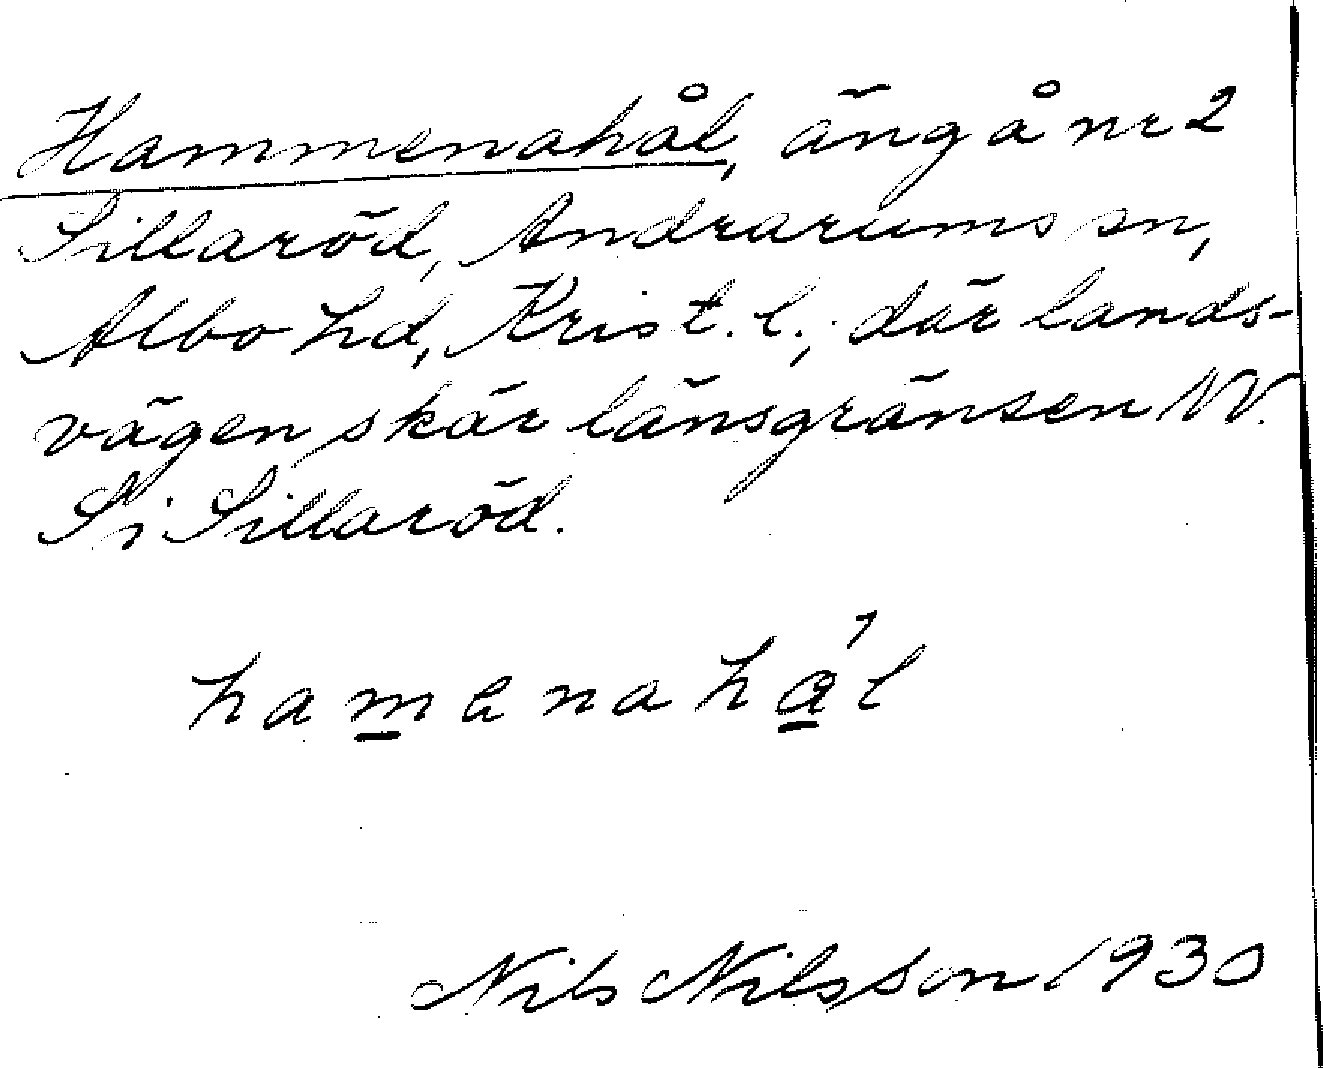 Hammenahål, äng å nr 2
Sillaröd, Andrarums sn,
Albo hd, Krist. l., där lands-
vägen skär länsgränsen NV.
S i Sillaröd.
hamenahål
Nils Nilsson 1930